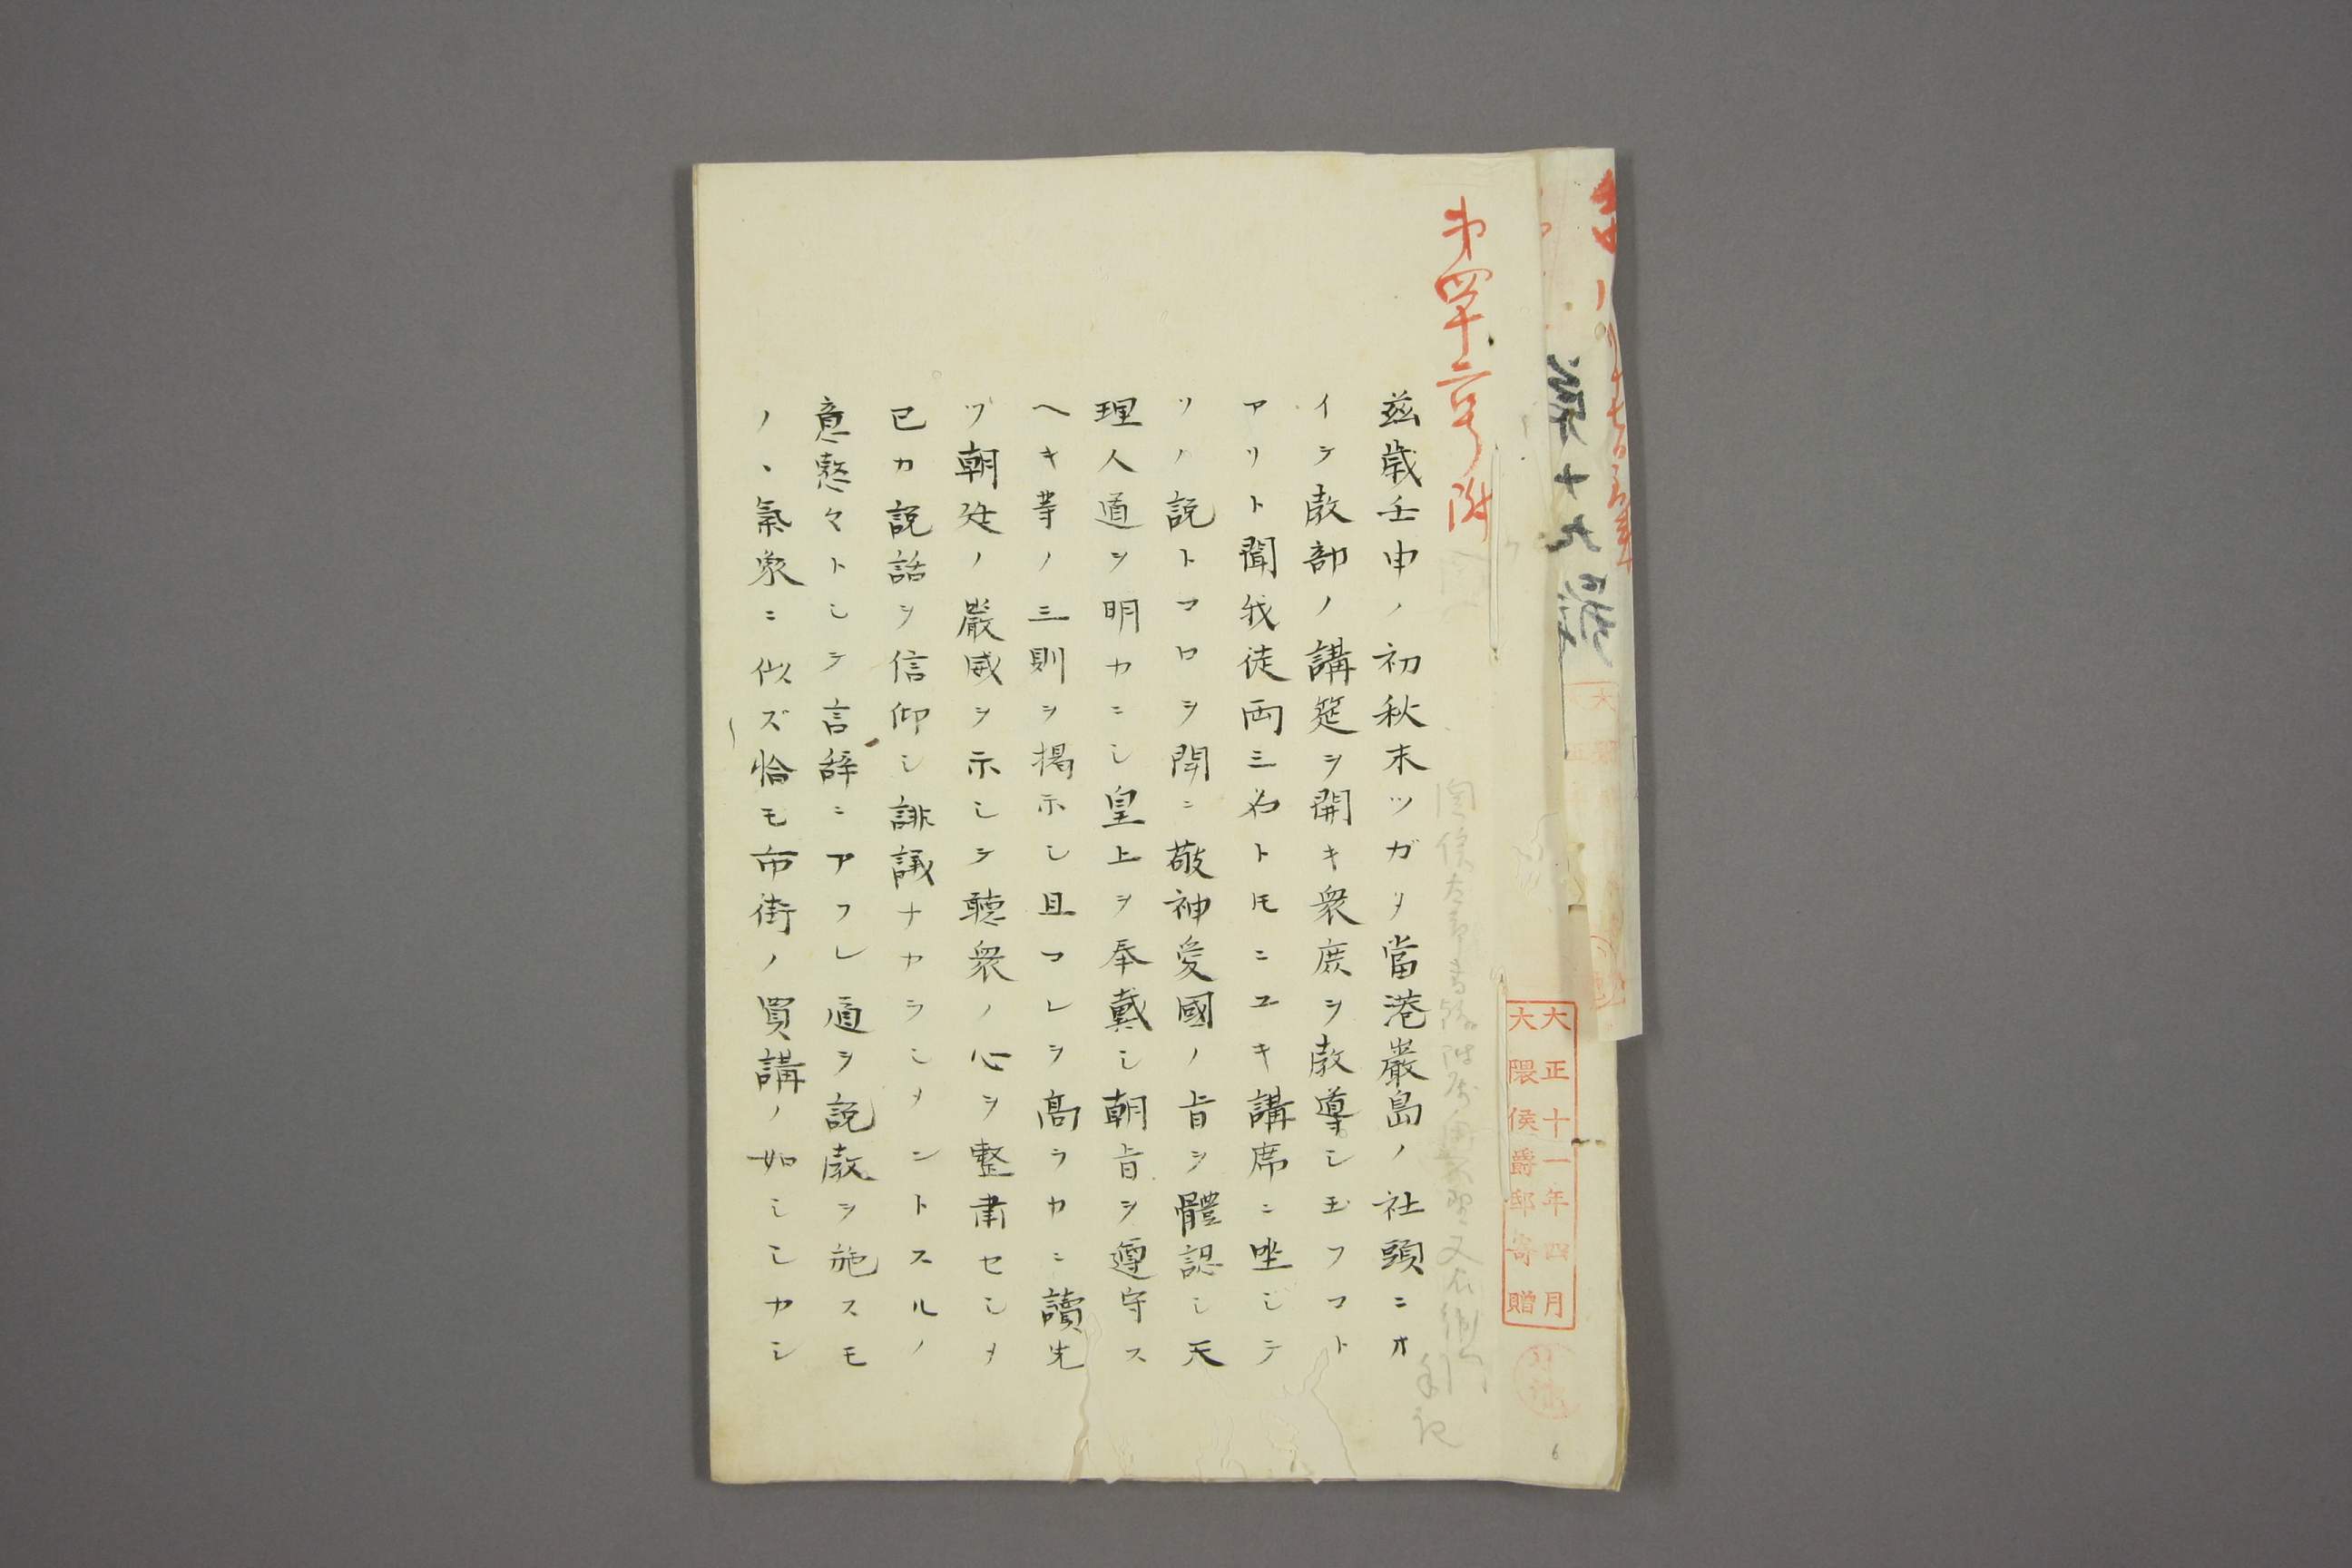 第十九號
第四十二号附
茲歳壬申ノ初秋末ツガタ當港巖島ノ社頭ニオ
イテ教部ノ講筵ヲ開キ衆庶ヲ教導シ玉フコト
アリト聞我徒両三名トモニユキ講席ニ坐シテ
ソノ説トコロヲ聞ニ敬神愛國ノ旨ヲ體認シ天
理人道ヲ明カニシ皇上ヲ奉戴シ朝旨ヲ遵守ス
ヘキ等ノ三則ヲ掲示シ且コレヲ髙ラカニ讀先
ヅ朝廷ノ嚴威ヲ示シテ聴衆ノ心ヲ整肅セシメ
已カ説話ヲ信仰シ誹議ナカラシメントスルノ
意慇々トシテ言辞ニアフレ道ヲ説教ヲ施スモ
ノヽ氣象ニ似ズ恰モ市街ノ買講ノ如シシカシ
大正十一年四月
大隈侯爵邸寄贈
6